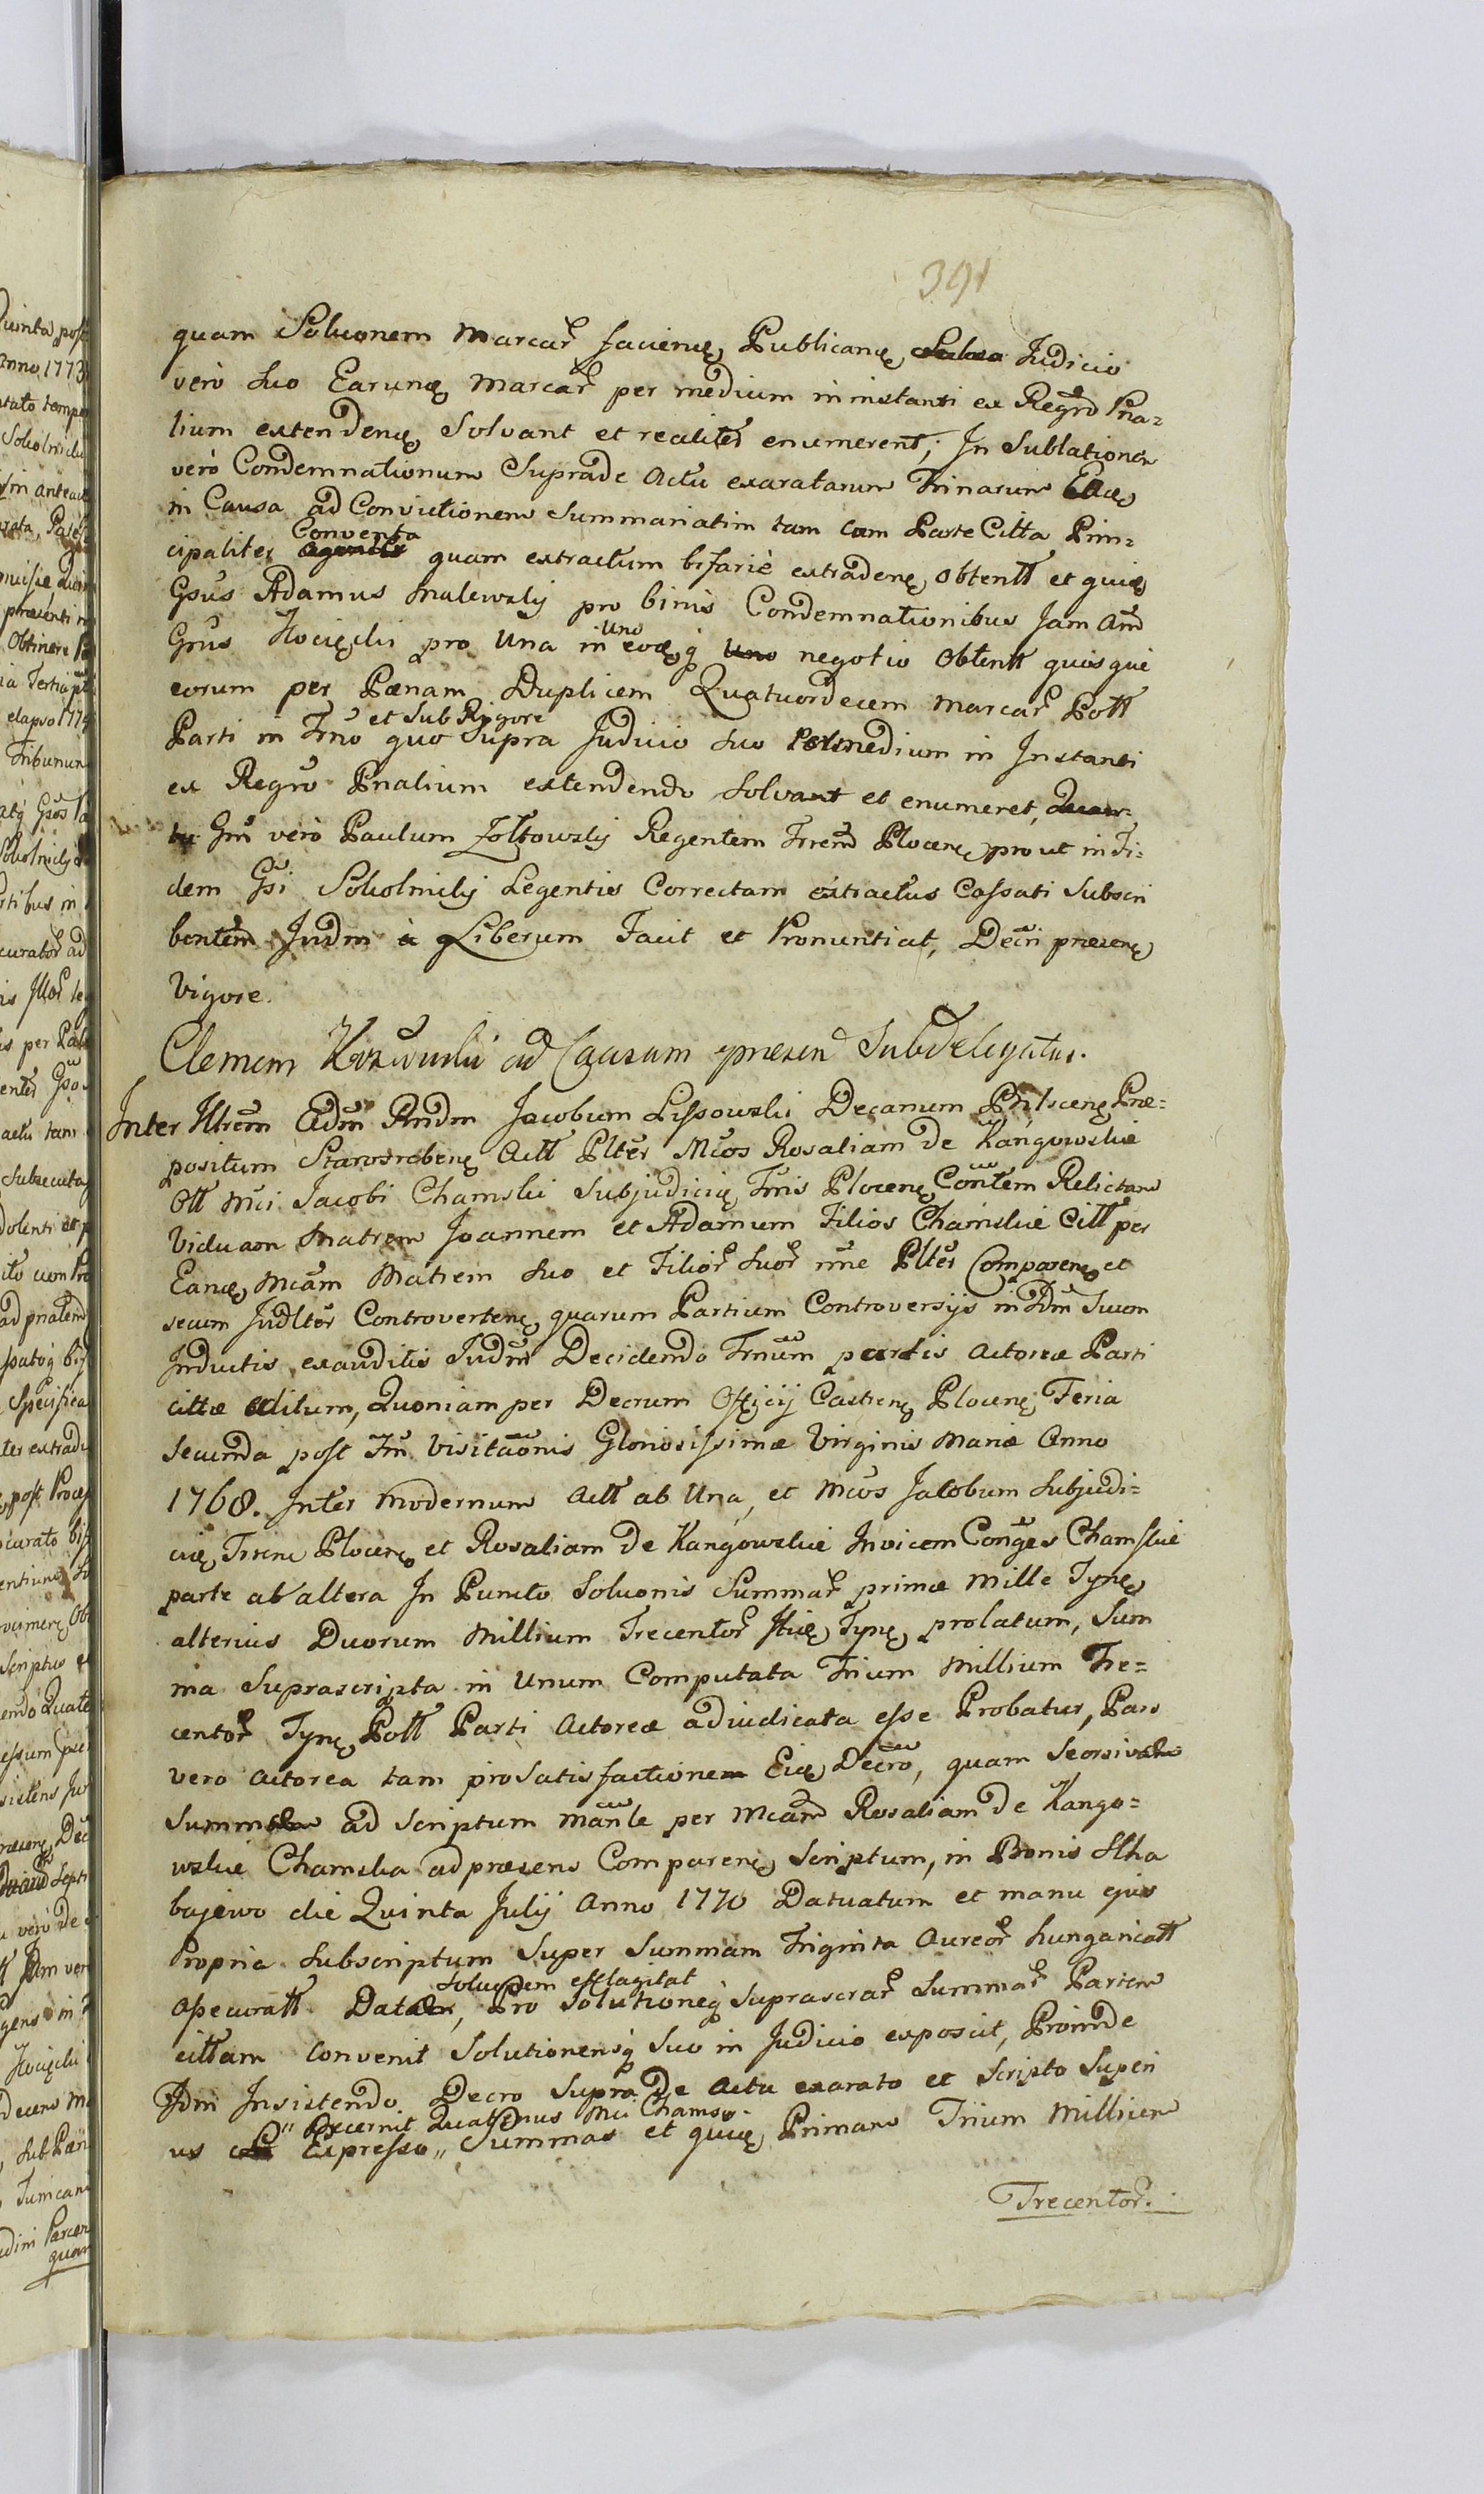 391
quam Soluonem Marcar faciene, Publicane, Judicio
verò suo Earune, Marcar per medium in instanti ex Regrō Pna=
lium extendene, Solvant et realiter enumerent; In Sublationem
verò Condemnationum Suprade Actu exaratarum Trinarum Eae,
in Causa ad Convictionem Summariatim tam cum Parte Citta Prin=
Conventa
cipaliter quam extractum bifariè extradene, obtentt et quie,
Gsus Adamus Malewsky pro binis Condemnationibus Jam
Uno
Grus Kocięcki pro Una in eoq, Uno negotio Obtentt quisque
eorum per Pænam Duplicem Quatuordecem Marcar Pott
et Sub Rigore
Parti in Trno quo Supra Judicio suo Permedium in Instanti
ex Regrō Pnalium extendendo Solvant et enumeret,
Grū verò Paulum Zołtowsky Regentem Trrem Plocene, prout in Fi=
dem Gsi Sokolnicky Legentis Correctam extractus Cassati Subscri
bentem Judm à Liberum Facit et Pronuntiat, Decri præsene,
Vigore.
Clemem ad Causam præsen Subdelegatus.
Inter Illrem Adm Rndm Jacobum Lissowski Decanum Præ=
positum Starozrebene, Actt Plter Mcos Rosaliam de Kangowskie
Ott Mci Jacobi Chamski Subjudicis, Trris Plocene, Contem Relictam
Viduam Matrem Joannem et Adamum Filios Chamskie Citt per
Eane, Mcam Matrem suo et Filior Suor nne Plter Comparene, et
secum Judlter Controvertene, quarum Partium Controversijs in Jdm Suum
Inductis exauditis Judm Decidendo Trnum partis Actoreæ Parti
cittæ editum, Quoniam per Decrum Officij Castrene, Plocene, Feria
Secunda post Fm Visitaōnis Gloriosissimæ Virginis Mariæ Anno
1768. Inter Modernum Actt ab Una, et Mcos Jacobum Subjudi=
cie, Trrene Plocene, et Rosaliam de Kangowskie Invicem Conges Chamskie
parte ab altera In Puncto Soluonis Summar primæ Mille Tyne,
alterius Duorum Millium Trecentor Tyne, prolatum, Sum
ma Suprascripta in Unum Computata Trium Millium Tre=
centor Tyne, Pott Parti Actoreæ adiudicata esse Probatur, Pars
vero Actorea tam pro Satisfactione Eie, Decro, quam Seorsivam
Summam ad Scriptum Manle per Mcam Rosaliam de Kango=
wskie Chamska ad præsens Comparene, Scriptum, in Bonis
bajewo die Quinta Julij Anno 1770 Datuatum et manu ejus
Propria Subscriptum Super Summam Triginta Aureor hungaricatt
Soluonem efflagitat
Assecuratt Datam, Pro Solutioneq, Suprascrar Summar Partem
cittam Convenit Solutionemq, Suo in Judicio exposcit, Proinde
Jdm Insistendo Decro Supra De Actu exarato et Scripto Superi
„ Decernit Quatenus Mci Chamsc.
us Expresso „ Summas et quie, Primam Trium Millium
Trecentor.